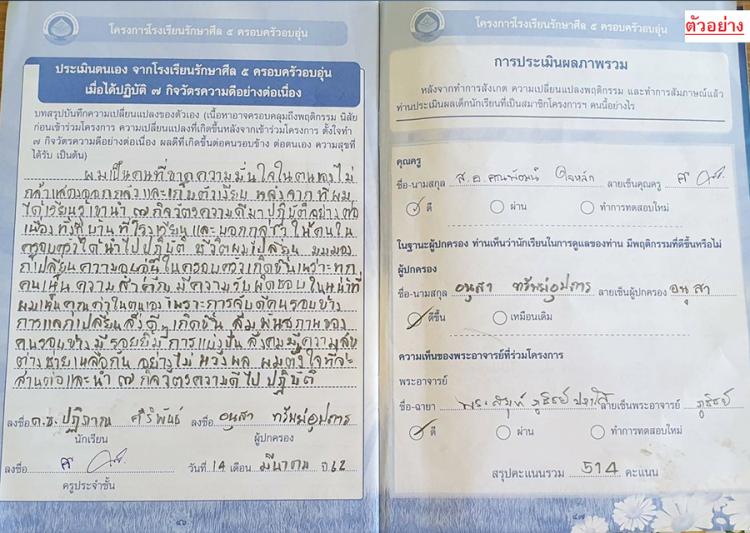 ตัวอย่าง
โครงการโรงเรียนรักษาศีล ๕ ครอบครัวอบอุ่น
ประเมินตนเอง จากโรงเรียนรักษาศีล ๕ ครอบครัวอบอุ่น
เมื่อได้ปฏิบัติ ๗ กิจวัตรความดีอย่างต่อเนื่อง
บทสรุปบันทึกความเปลี่ยนแปลงของตัวเอง (เนื้อหาอาจครอบคลุมถึงพฤติกรรม นิสัย
ก่อนเข้าร่วมโครงการ ความเปลี่ยนแปลงที่เกิดขึ้นหลังจากเข้าร่วมโครงการ ตั้งใจทำ
๗ กิจวัตรความดีอย่างต่อเนื่อง ผลดีที่เกิดขึ้นต่อคนรอบข้าง ต่อตนเอง ความสุขที่
ได้รับ เป็นต้น)
ผมเป็นคนที่ขาดความมั่นใจในตนเองไม่
กล้าแสดงออกกลัวและเก็บตัวเงียบ หลังจากที่ผม
ได้เรียนรู้เอานำ ๗ กิจวัตรความดีมาปฏิบัติอย่างต่อ
เนื่อง ทั้งที่บ้าน ที่โรงเรียน และบอกกล่าวให้คนใน
ครอบครัวได้นำไปปฏิบัติ ชีวิตผมเปลี่ยน มุมมอง
ก็เปลี่ยนความอบอุ่นในครอบครัวเกิดขึ้นเพราะทุก
คนเห็นความสำคัญ มีความรับผิดชอบในหน้าที่
ผมเห็นคุณค่าในตนเอง เพราะการ คนรอบข้าง
การแลกเปลี่ยนสิ่งดีๆ เกิดขึ้น สัมพันธภาพของ
คนรอบข้างมีรอยยิ้ม การแบ่งปัน สังคมมีความสุข
ต่างช่วยเหลือกัน อย่างไม่หวังผล ผมตั้งใจที่จะ
สานต่อและนำ ๗ กิจวัตรความดีไปปฏิบัติ
ลงชื่อ ด.ช.ปฏิภาณ ศิริพันธ์ ลงชื่อ อนุสา ทรัพย์อุปการ
นักเรียน ผู้ปกครอง
ลงชื่อ วันที่ 14 เดือน มีนาคม ปี 62
ครูประจำชั้น
๔๖
โครงการโรงเรียนรักษาศีล ๕ ครอบครัวอบอุ่น
การประเมินผลภาพรวม
หลังจากทำการสังเกต ความเปลี่ยนแปลงพฤติกรรม และทำการสัมภาษณ์แล้ว
ท่านประเมินผลเด็กนักเรียนที่เป็นสมาชิกโครงการฯ คนนี้อย่างไร
คุณครู
ชื่อ-นามสกุล ส.อ.คณพัฒน์ ใจหลัก ลายเซ็นคุณครู
ดี ผ่าน ทำการทดสอบใหม่
ในฐานะผู้ปกครอง ท่านเห็นว่านักเรียนในการดูแลของท่าน มีพฤติกรรมที่ดีขึ้นหรือไม่
ผู้ปกครอง
ชื่อ-นามสกุล อนุสา ทรัพย์อุปการ ลายเซ็นผู้ปกครอง อนุสา
ดีขึ้น เหมือนเดิม
ความเห็นของพระอาจารย์ที่ร่วมโครงการ
พระอาจารย์
ชื่อ-ฉายา ลายเซ็นพระอาจารย์
ดี ผ่าน ทำการทดสอบใหม่
สรุปคะแนนรวม 514 คะแนน
๔๗